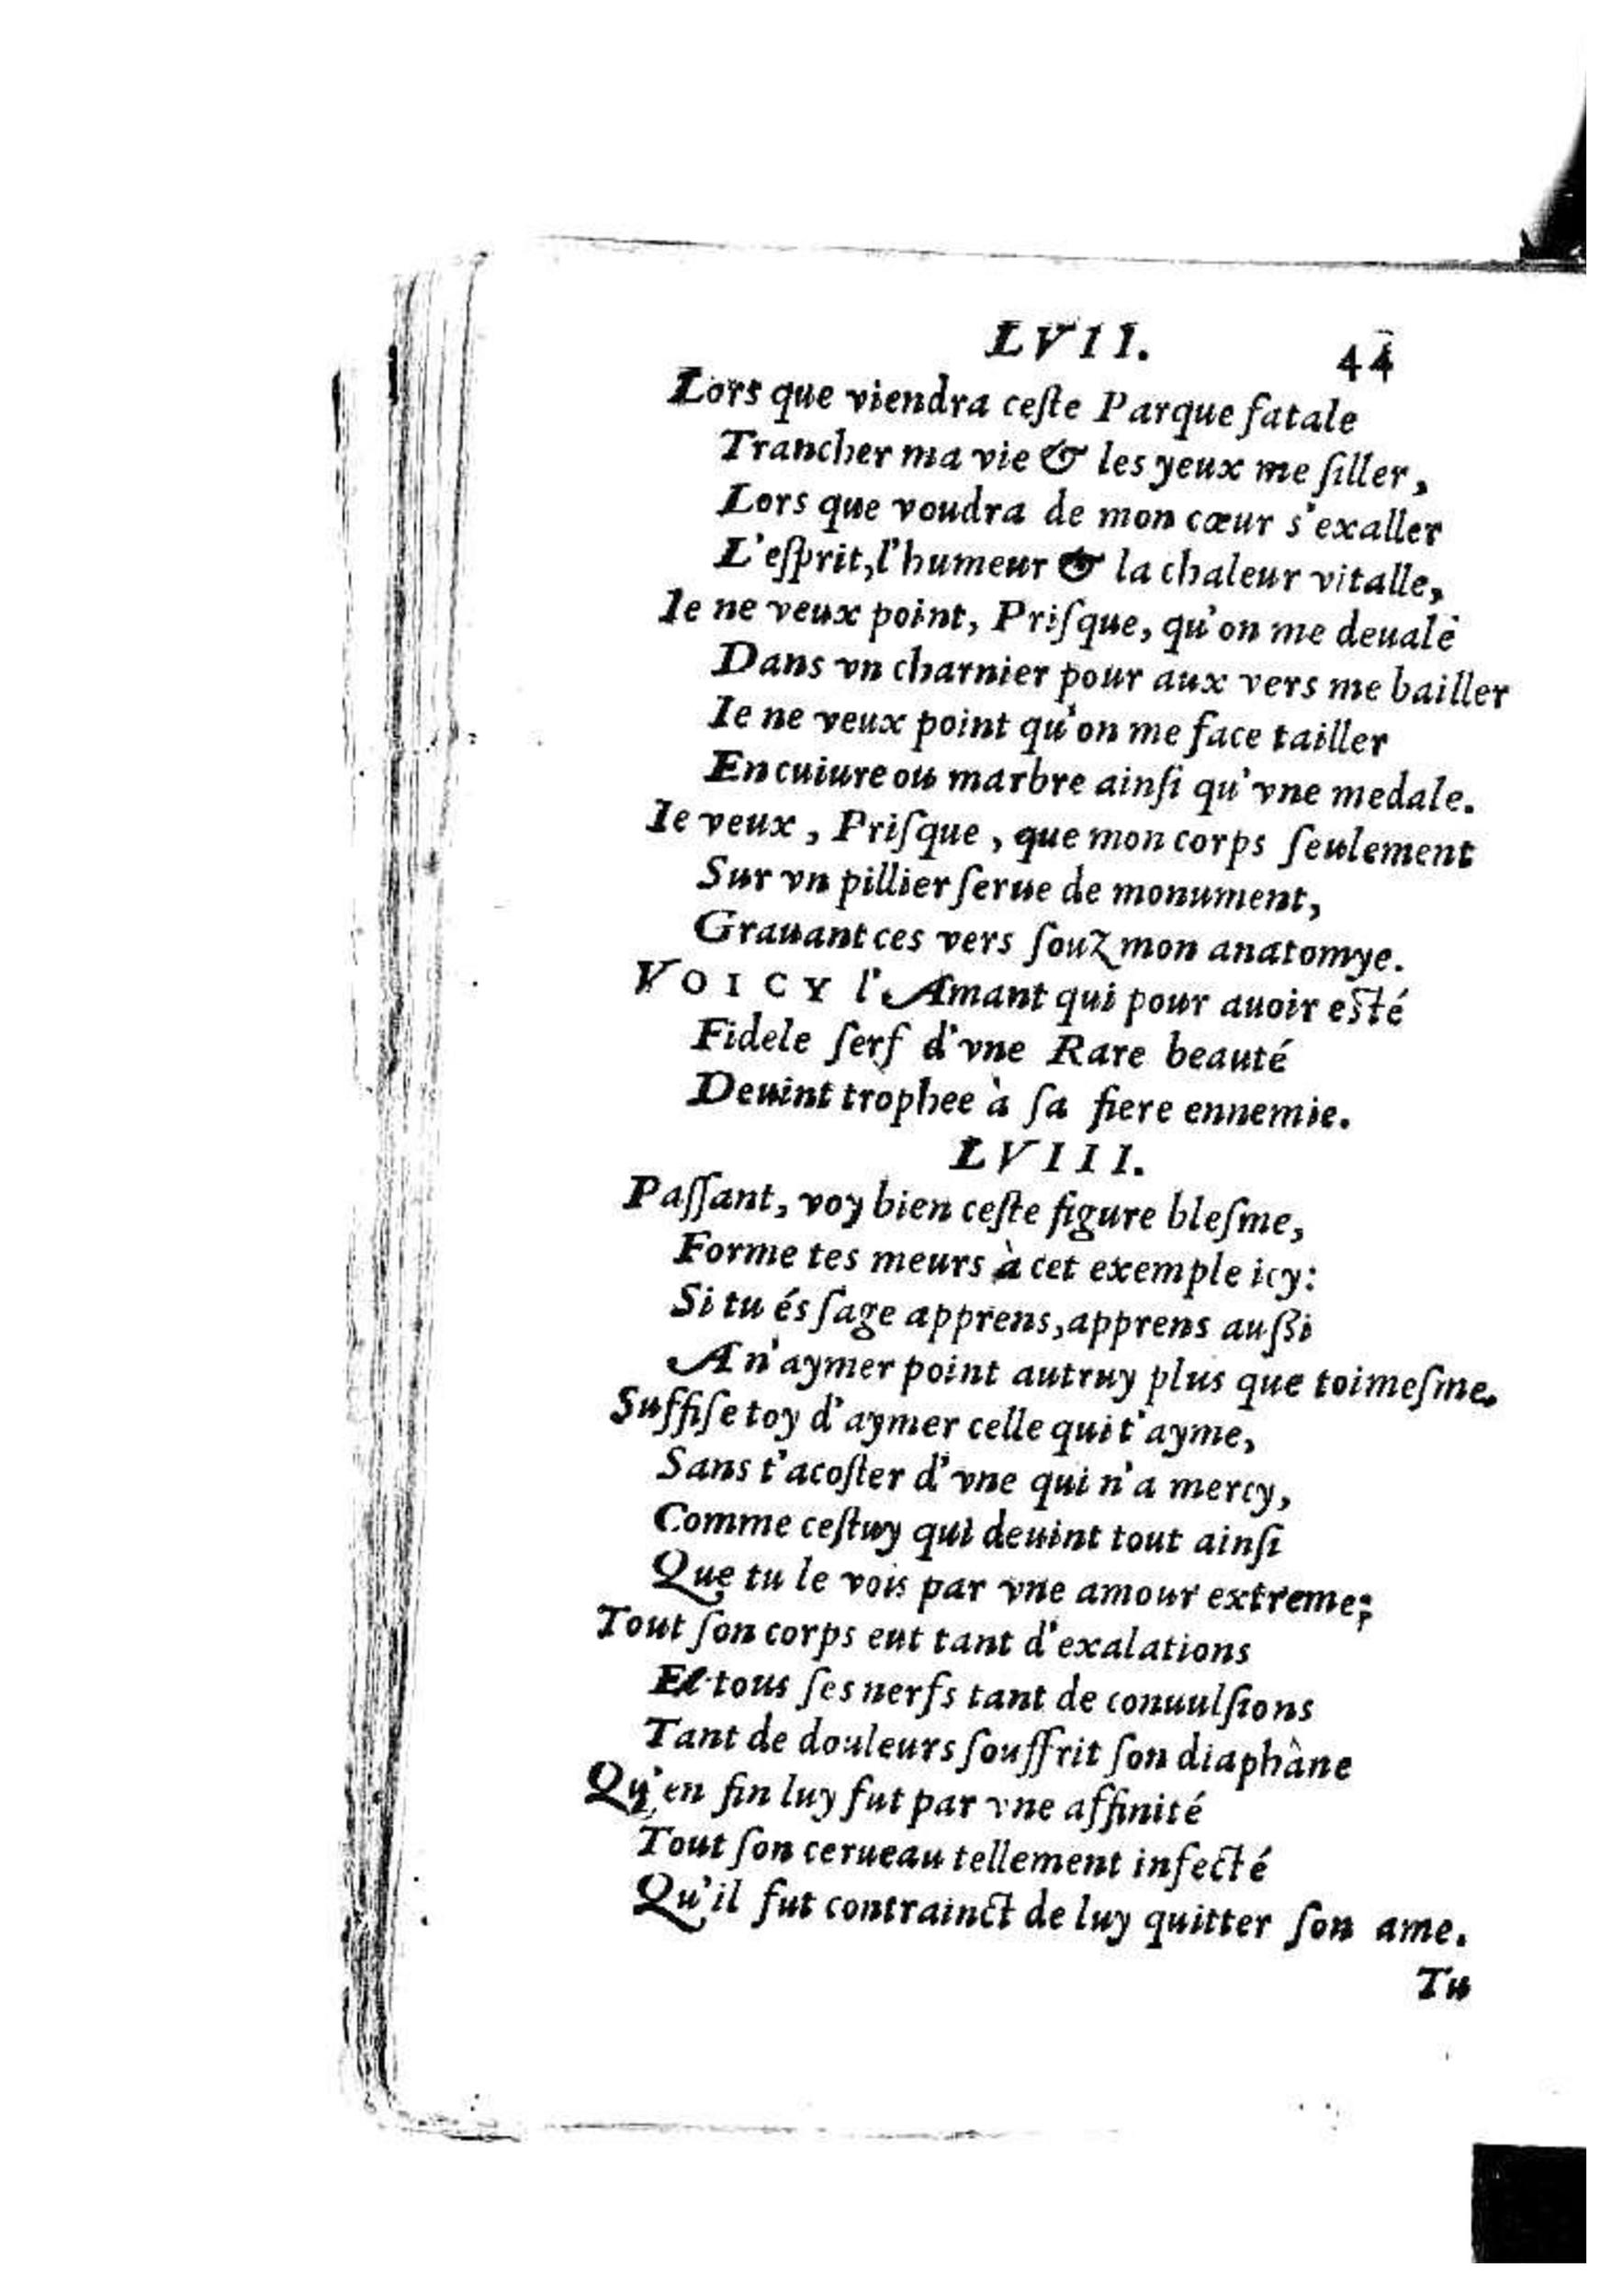 LVII. 44
Lors que viendra ceſte Parque fatale
Trancher ma vie & les yeux me ſiller,
Lors que voudra de mon cœur s'exaller
L'eſprit, l'humeur & la chaleur vitalle,
Ie ne veux point, Priſque, qu'on me deuale
Dans vn charnier pour aux vers me bailler
Ie ne veux point qu'on me face tailler
En cuiure ou marbre ainſi qu'vne medale.
Ie veux, Priſque, que mon corps ſeulement
Sur vn pillier ſerue de monument,
Grauant ces vers ſouz mon anatomye.
VOICY l'Amant qui pour auoir eſté
Fidele ſerf d'vne Rare beauté
Deuint trophee à ſa fiere ennemie.
LVIII.
Paſſant, voy bien ceſte figure bleſme,
Forme tes meurs à cet exemple icy:
Si tu és ſage apprens, apprens auſſi
A n'aymer point autruy plus que toimeſme.
Suffiſe toy d'aymer celle qui t'ayme,
Sans t'acoſter d'vne qui n'a mercy,
Comme ceſtuy qui deuint tout ainſi
Que tu le vois par vne amour extreme;
Tout ſon corps eut tant d'exalations
Et tous ſes nerfs tant de conuulſions
Tant de douleurs ſouffrit ſon diaphâne
Qu'en fin luy fut par vne affinité
Tout ſon cerueau tellement infecté
Qu'il fut contrainct de luy quitter ſon ame.
Tu